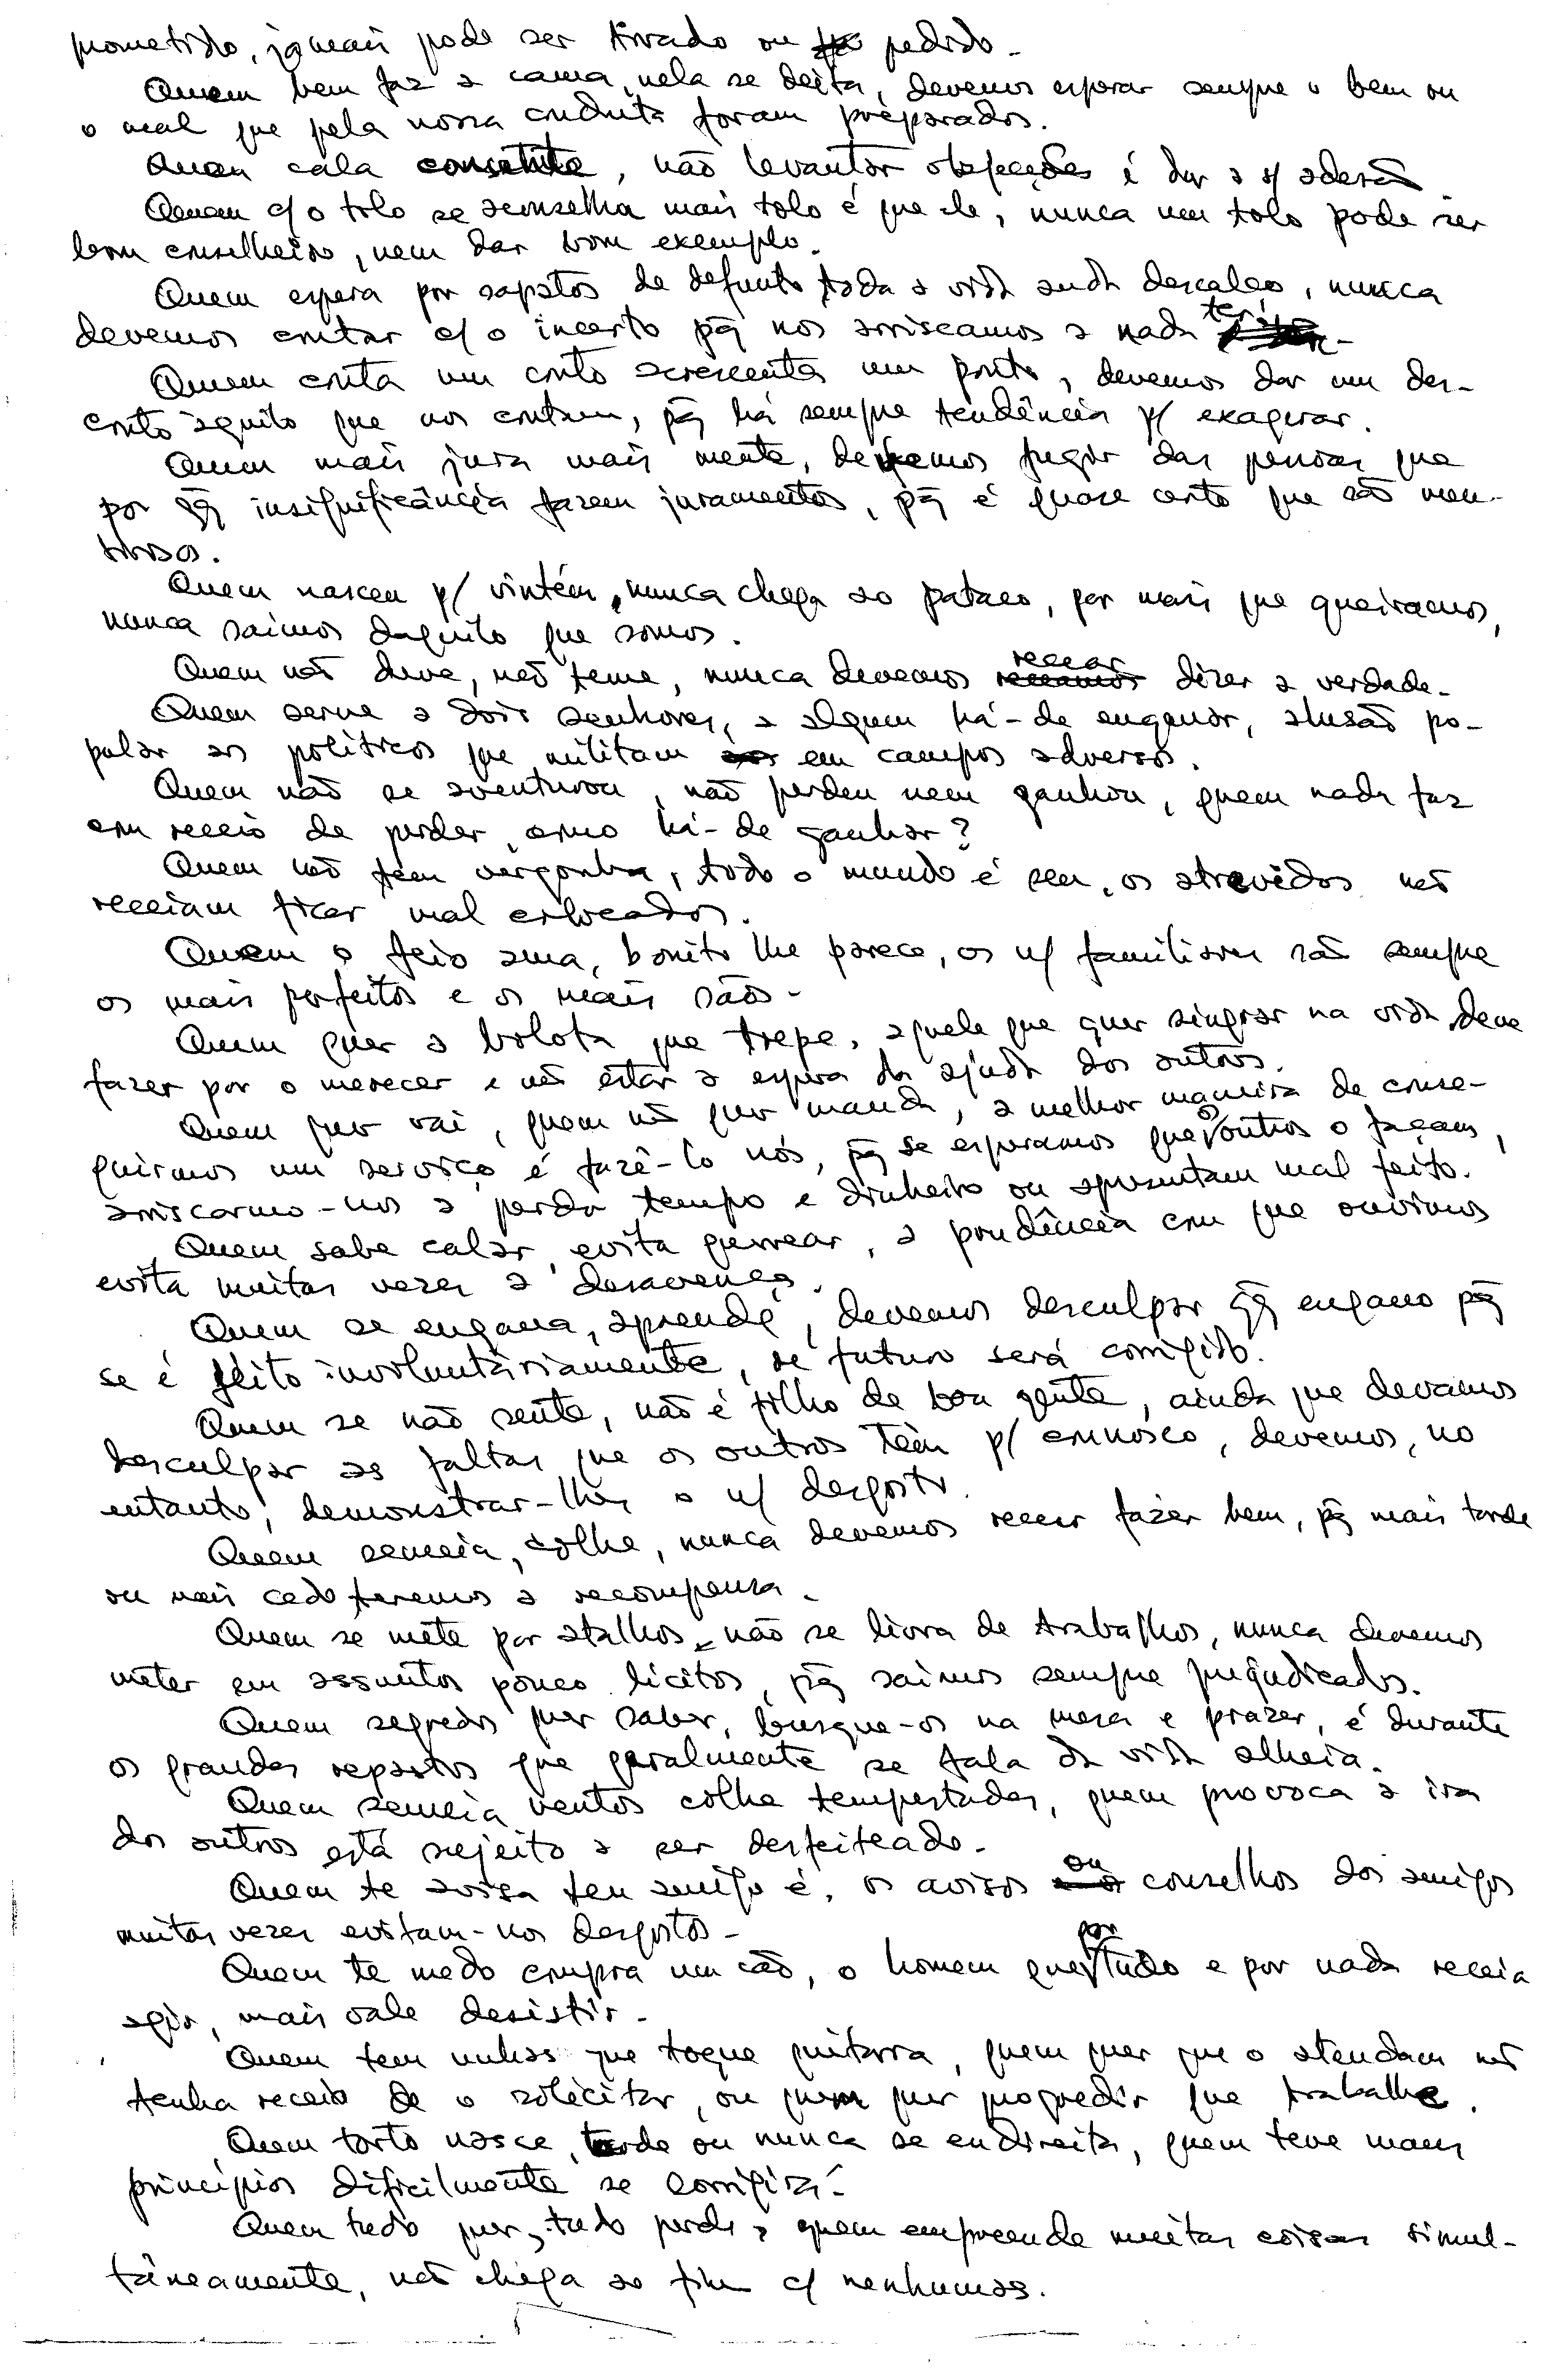 prometido, jamais pode ser tirado ou pedido.
Quem bem faz a cama, nela se deita, devemos esperar sempre o bem ou
o mal que pela nossa conduta foram preparados.
Quem cala consente, não levantar objecções é dar a s/ adesão
Quem c/ o tolo se aconselha mais tolo é que ele, nunca um tolo pode ser
bom conselheiro, nem dar bom exemplo.
Quem espera por sapatos de defunto, toda a vida anda descalço, nunca
devemos contar c/ o incerto pq̃ nos arriscamos a nada ter.
Quem conta um conto acrescenta um ponto, devemos dar um des-
conto àquilo que nos contam, pq̃ há sempre tendência p/ exagerar.
Quem mais jura mais mente, devemos fugir das pessoas que
por qq̃ insignificância fazem juramentos, pq̃ é quase certo que são men-
tirosos.
Quem nasceu p/ vintém, nunca chega ao pataco, por mais que queiramos,
nunca saimos daquilo que somos.
Quem não deve, não teme, nunca devemos recear dizer a verdade.
Quem serve a dois senhores, a algum há-de enganar, alusão po-
pular aos politicos que militam em campos adversos.
Quem não se aventurou, não perdeu nem ganhou, quem nada faz
com receio de perder, como há-de ganhar?
Quem não tem vergonha, todo o mundo é seu, os atrevidos não
receiam ficar mal colocados.
Quem o feio ama, bonito lhe parece, os n/ familiares são sempre
os mais perfeitos e os mais sãos.
Quem quer a bolota que trepe, aquele que quer singrar na vida, deve
fazer por o merecer e não estar a espera da ajuda dos outros.
Quem quer vai, quem não quer manda, a melhor maneira de conse-
guirmos um serviço é fazê-lo nós, pq̃ se esperamos que os outros o façam,
arriscarmo-nos a perda tempo e dinheiro ou apresentam mal feito.
Quem sabe calar, evita guerrear, a prudência com que ouvimos
evita muitas vezes a desavença.
Quem se engana, aprende, devemos desculpar qq̃ engano pq̃
se é feito involuntàriamente, de futuro será corrigido.
Quem se não sente, não é filho de boa gente, ainda que devamos
desculpar as faltas que os outros têm p/ connosco, devemos, no
entanto, demonstrar-lhes o n/ desgosto.
Quem semeia, colhe, nunca devemos recear fazer bem, pq̃ mais tarde
ou mais cedo teremos a recompensa.
Quem se mete por atalhos, não se livra de trabalhos, nunca devemos
meter em assuntos pouco licitos, pq̃ saimos sempre prejudicados.
Quem segredos quer saber, busque-os na mesa e prazer, é durante
os grandes repastos que geralmente se fala da vida alheia.
Quem semeia ventos colhe tempestades, quem provoca a ira
dos outros está sujeito a ser desfeiteado.
Quem te avisa teu amigo é, os avisos ou conselhos dos amigos
muitas vezes evitam-nos desgostos.
Quem te medo compra um cão, o homem que por tudo e por nada receia
agir, mais vale desistir.
Quem tem unhas que toque guitarra, quem quer que o atendam não
tenha receio de o solicitar, ou quem quer progredir que trabalhe.
Quem torto nasce, tarde ou nunca se endireita, quem teve maus
principios dificilmente se corrigirá.
Quem tudo quer, tudo perde, quem empreende muitas coisas simul-
tâneamente, não chega ao fim c/ nenhumas.